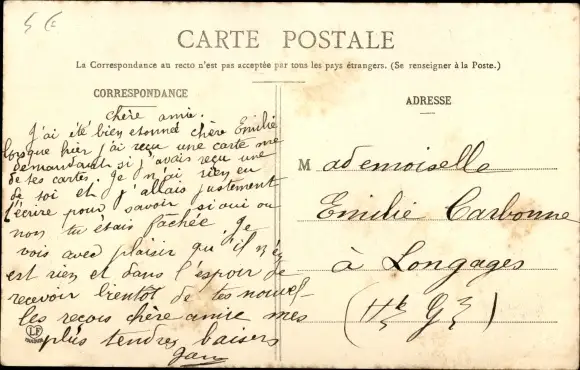 5 €
CARTE POSTALE
La Correspondance au recto n'est pas acceptée par tous les pays étrangers. (Se renseigner à la Poste.)
CORRESPONDANCE
chère amie.
J'ai été bien etonné chère Emilie
lorsque hier j'ai reçu une carte me
demandant si j'avais reçu une
de tes cartes. Je n'ai rien eu
de toi et j'allais justement
t'écrire pour savoir si oui ou
non tu étais fachée. Je
vois avec plaisir qu'il n'en
est rien et dans l'espoir de
recevoir bientot de tes nouvel-
les reçois chère amie mes
plus tendres baisers
LF
ADRESSE
Mademoiselle
Emilie Carbonne
à Longages
(Hte G)